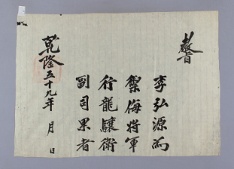 敎旨
李弘源爲
禦侮將軍
行龍驤衛
副司果者
乾隆五十九年 月 日